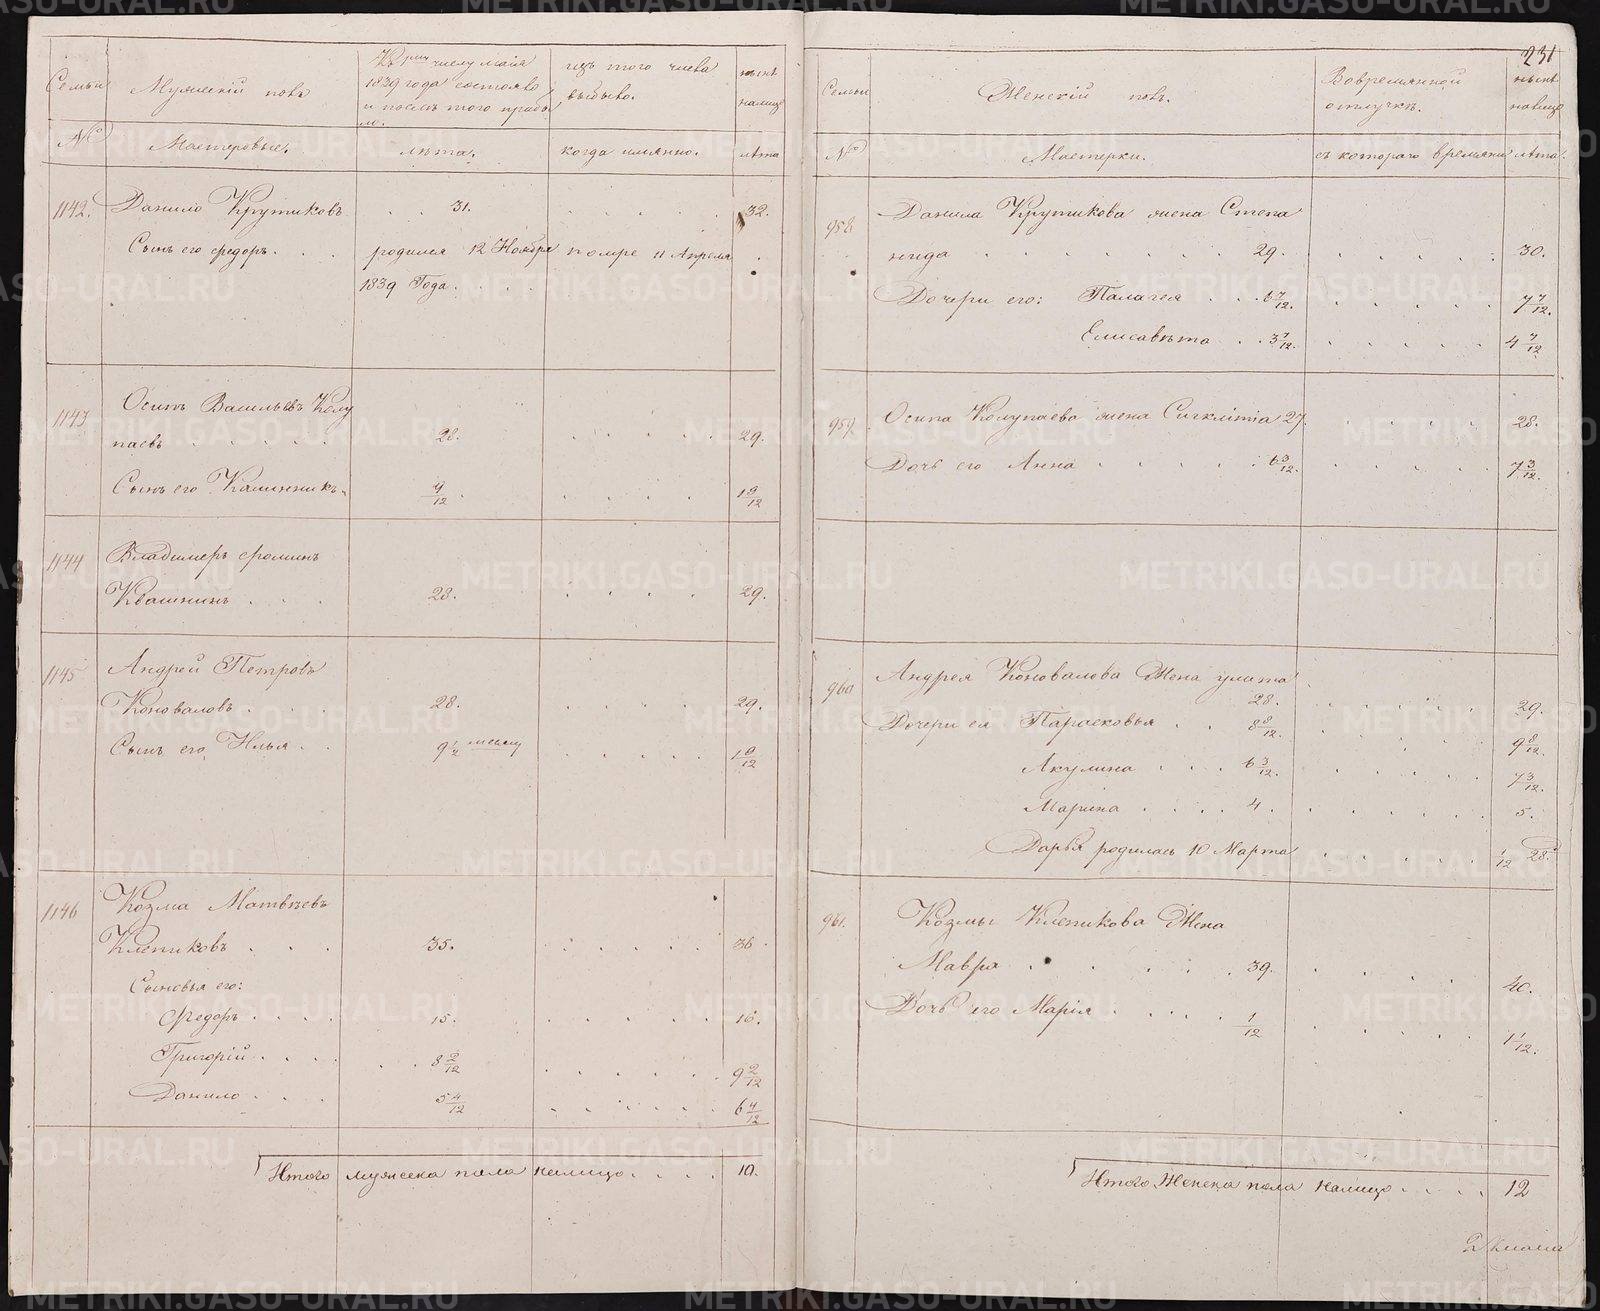 231
Семьи
Мужескiй полъ
Къ числу маiя
1839 года состояло
и послѣ того прибы
ло.
изъ того числа
выбыло.
нынѣ
налицо
№
Мастеровые.
лѣта.
когда имянно.
лѣта
1142. Данило Крутиковъ . . 31. . . . . . 32.
Сынъ его Федоръ . . . родился 12 Ноября помре 11 Апреля .
1839 Года . . . .
1143 Осипъ Васильевъ Колу
паевъ . . . . . 28. . . . . . 29.
Сынъ его Калинникъ 9/12 . . . . . 1 9/12
1144 Владимеръ Фроминъ
Квашнинъ . . . 28. . . . . 29.
1145 Андрей Петровъ
Коноваловъ . . . 28. . . . . 29.
Сынъ его Илья . . 9 1/2 месяц . . . . 1 9/12
1146 Козма Матвѣевъ
Клепиковъ . . . 35. . . . . . 36.
Сыновья его:
Федоръ . . . . 15. . . . . . 16.
Григорiй . . . . . 8 2/12 . . . . . 9 2/12
Данило . . . 5 4/12 . . . . . 6 4/12
Итого мужеска пола налицо . . . . 10.
Семьи
Женскiй полъ.
Вовремянной
отлучкѣ.
нынѣ
налицо
№
Мастерки.
съ котораго времяни
лѣта.
958 Данила Крутикова жена Степа
нида . . . . . . . 29. . . . . . 30.
Дочери его: Палагея . . . 6 7/12. . . . . . 7 7/12.
Елисавѣта . . 3 7/12. . . . . . 4 7/12
959. Осипа Колупаева жена Сигклiтiя 27. . . . . . 28.
Дочь его Анна . . . . . 6 3/12. . . . . 7 3/12.
960 Андрея Коновалова Жена улита
28. . . . . . 29.
Дочери ея Парасковья . . 8 8/12. . . . . . 9 8/12.
Акулина . . . 6 3/12. . . . . . 7 3/12.
Марина . . . . 4. . . . . . 5.
Дарья родилась 10 Марта . . . . . 1/12 28.
961. Козмы Клепикова Жена
Мавра . . . . . 39. . . . . 40.
Дочь его Марiя . . . . . 1/12 . . . . . 1 1/12.
Итого Женска пола налицо . . . . 12
METRIKI.GASO-URAL.RU